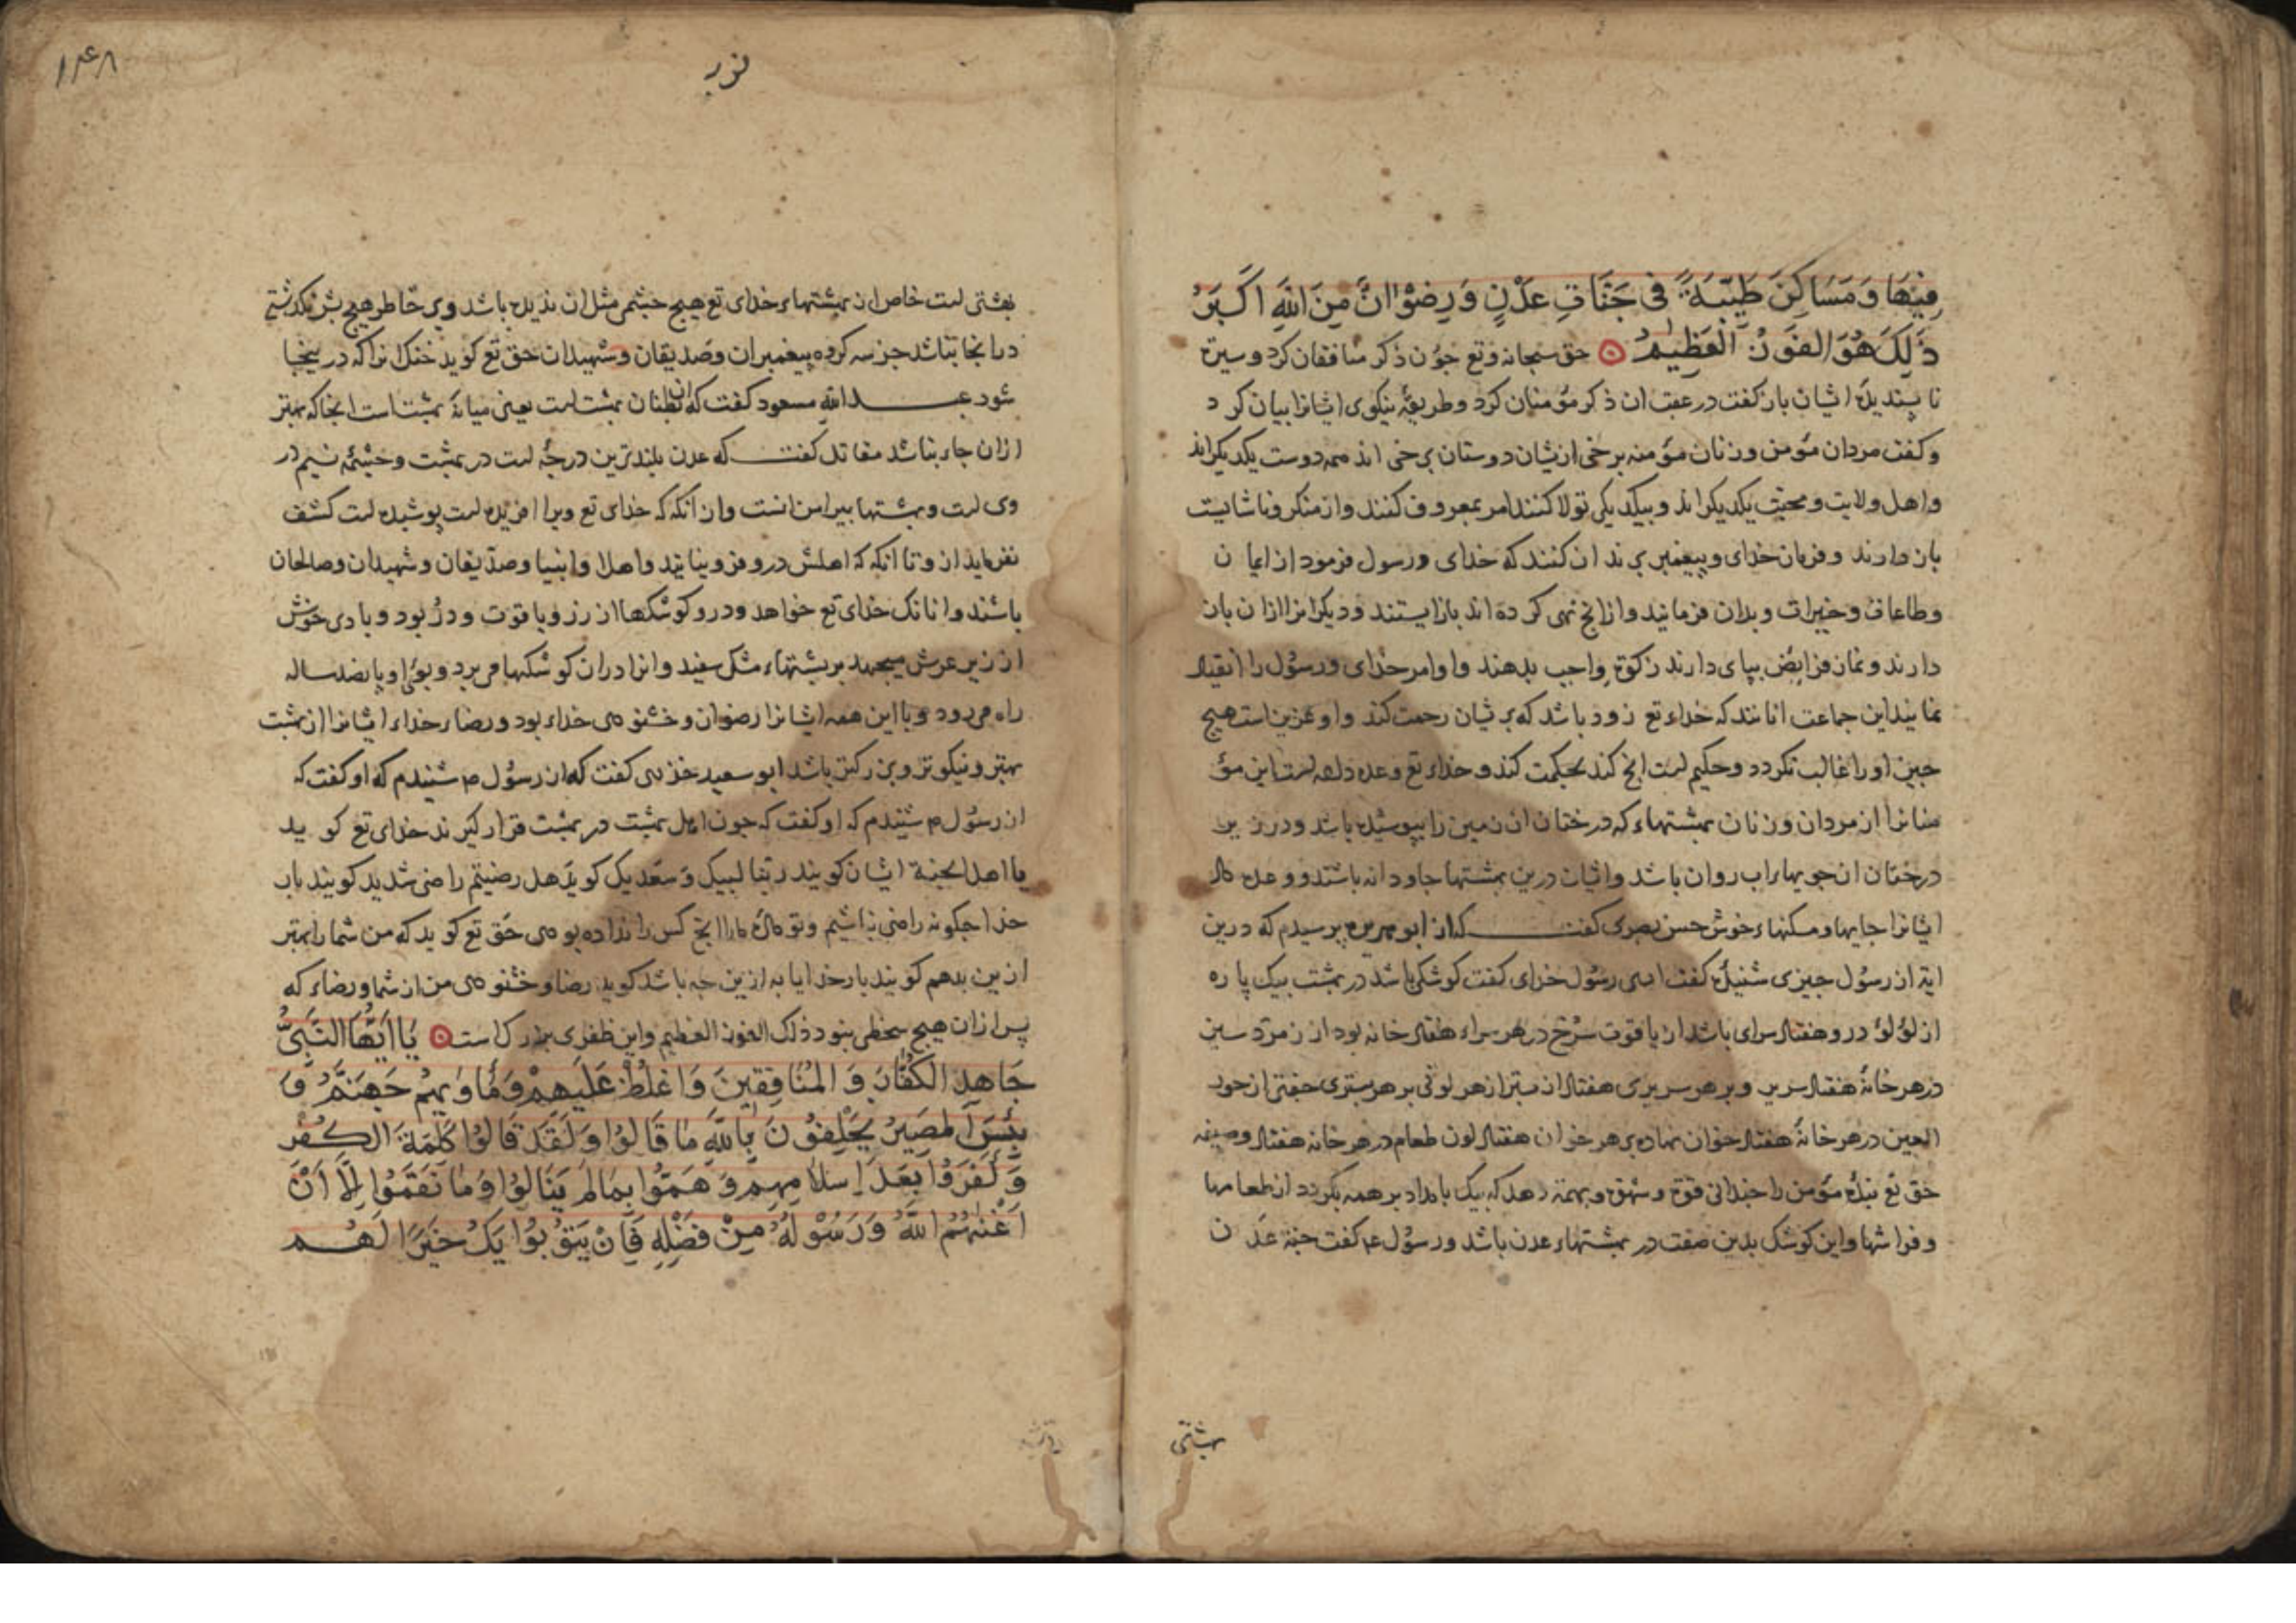 فِيهَا وَمَسَاكِنَ طَيِّبَةً فِي جَنَّاتِ عَدْنٍ وَرِضْوَانٌ مِنَ اللَّهِ اَكْبَرُ
ذَلِكَ هُوَ الفَوْزُ الْعَظِيمُ حق سبحانه وتع جون ذکر منافقان کرد و سیرت
نا پسندیدۀ ایشان باز کفت در عقب ان ذکر مؤمنان کرد و طریقۀ نیکوی ایشانرا بیان کرد
وکفت مردان مؤمن و زنان مؤمنه برخی ازیشان دوستان برخی اند همه دوست یکدیکراند
واهل ولایت و محبت یکدیکراند و بیکدیکر تولا کنند امر بمعروف کنند واز منکر و ناشایست
باز دارند و فرمان خدای و پیغمبر برند ان کنند که خدای و رسول فرمود از ایمان
وطاعات و خیرات و بدان فرمایند وازانج نهی کرده اند باز ایستند و دیکرانرا ازان باز
دارند و نماز فرایض بپای دارند زکوة واجب بدهند و اوامر خدای و رسول را انقیاد
نمایند این جماعت انانند که خداء تع زود باشد که بریشان رحمت کند و او عزیز است هیج
جیز او را غالب نکردد و حکیم است انج کند بحکمت کند و خداء تع وعده داده است این مؤ
منانرا از مردان و زنان بهشتهاء که درختان ان زمین را بپوشیده باشد و در زیر
درختان ان جویهاء اب روان باشد و ایشان درین بهشتها جاودانه باشند و وعده داد
ایشانرا جایها و مسکنهاء خوش حسن بصری کفت که از ابو هریره پرسیدم که درین
ایة از رسول جیزی شنیدۀ کفت اری رسول خدای کفت کوشکی باشد در بهشت بیک پاره
از لؤلؤ درو هفتاد سرای باشد از یاقوت سرخ در هر سراء هفتاد خانه بود از زمرد سبز
در هر خانۀ هفتاد سریر و بر هر سریری هفتاد بستر از هر لونی بر هر بستری جفتی از حور
العین در هر خانۀ هفتاد خوان نهاده بر هر خوان هفتاد لون طعام در هر خانه هفتاد وصیفه
حق تع بندۀ مؤمن را جندانی قوة و شهوة و نهمة دهد که بیک بامداد بر همه بکردد از طعامها
و فراشها و این کوشک بدین صفت در بهشتهاء عدن باشد و رسول ع کفت جنة عدن
بهشتی
۱۴۸
بهشتی است خاص از بهشتهاء خدای تع هیج جشمی مثل ان ندیده باشد و بر خاطر هیج بشر نکذشته
در انجا نباشد جز سه کروه پیغمبران و صدیقان و شهیدان حق تع کوید خنک انرا که در اینجا
شود عبدالله مسعود کفت که ان بطنان بهشت است یعنی میانۀ بهشت است انجا که بهتر
ازان جاء نباشد مقاتل کفت که عدن بلندترین درجۀ است در بهشت و جشمۀ تسنیم در
وی است و بهشتها بیرامن انست و ازانکه که خدای تع ویرا افریده است پوشیده است کشف
نفرماید ازو تا انکه که اهلش درو فرو نیایند و اهل او انبیا و صدیقان و شهیدان و صالحان
باشند و انانک خدای تع خواهد و درو کوشکها از زر و یاقوت و در بود و بادی خوش
از زیر عرش میجهد بر پشتهاء مشک سفید و انرا دران کوشکها می برد و بوی او پانصد ساله
راه می رود و با این همه ایشانرا رضوان و خشنودی خداء بود و رضاء خداء ایشانرا از بهشت
بهتر و نیکوتر و بزرکتر باشد ابو سعید خدری کفت که از رسول م شنیدم که او کفت که
از رسول م شنیدم که او کفت که جون اهل بهشت در بهشت قرار کیرند خدای تع کوید
یا اهل الجنة ایشان کویند ربنا لبیک و سعدیک کوید هل رضیتم راضی شدید کویند بار
خدایا جکونه راضی نباشیم و تو دادۀ مارا انج کس را نداده بودی حق تع کوید که من شما را بهتر
ازین بدهم کویند بار خدایا به ازین جه باشد کوید رضا و خشنودی من از شما و رضاء که
پس ازان هیج سخطی نبود ذلک الفوز العظیم و این ظفری بزرک است يَا اَيُّهَا النَّبِيُّ
جَاهِدِ الكُفَّارَ وَ المُنَافِقِينَ وَاغْلُظْ عَلَيْهِمْ وَمَأْوَيهُمْ جَهَنَّمُ وَ
بِئْسَ الْمَصِيرُ يَحْلِفُونَ بِاللَّهِ مَا قَالُوا وَلَقَدْ قَالُوا كَلِمَةَ الكُفْرِ
وَكَفَرُوا بَعْدَ اِسْلَامِهِمْ وَ هَمُّوا بِمَا لَمْ يَنَالُوا وَمَا نَقَمُوا اِلَّا اَنْ
اَغْنٰهُمُ اللَّهُ وَرَسُولُهُ مِنْ فَضْلِهِ فَاِنْ يَتُوبُوا يَكُ خَيْرًا لَهُمْ